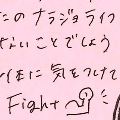 たのナラジョライフ
ないことでしょう
体に気をつけて
Fight